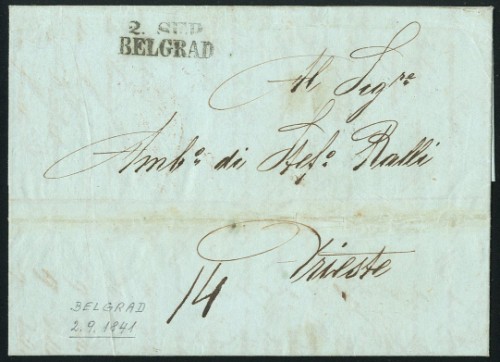 2. SEP.
BELGRAD
Al Sigre
Ambo di Stefo Ralli
Trieste
14
BELGRAD
2.9.1841